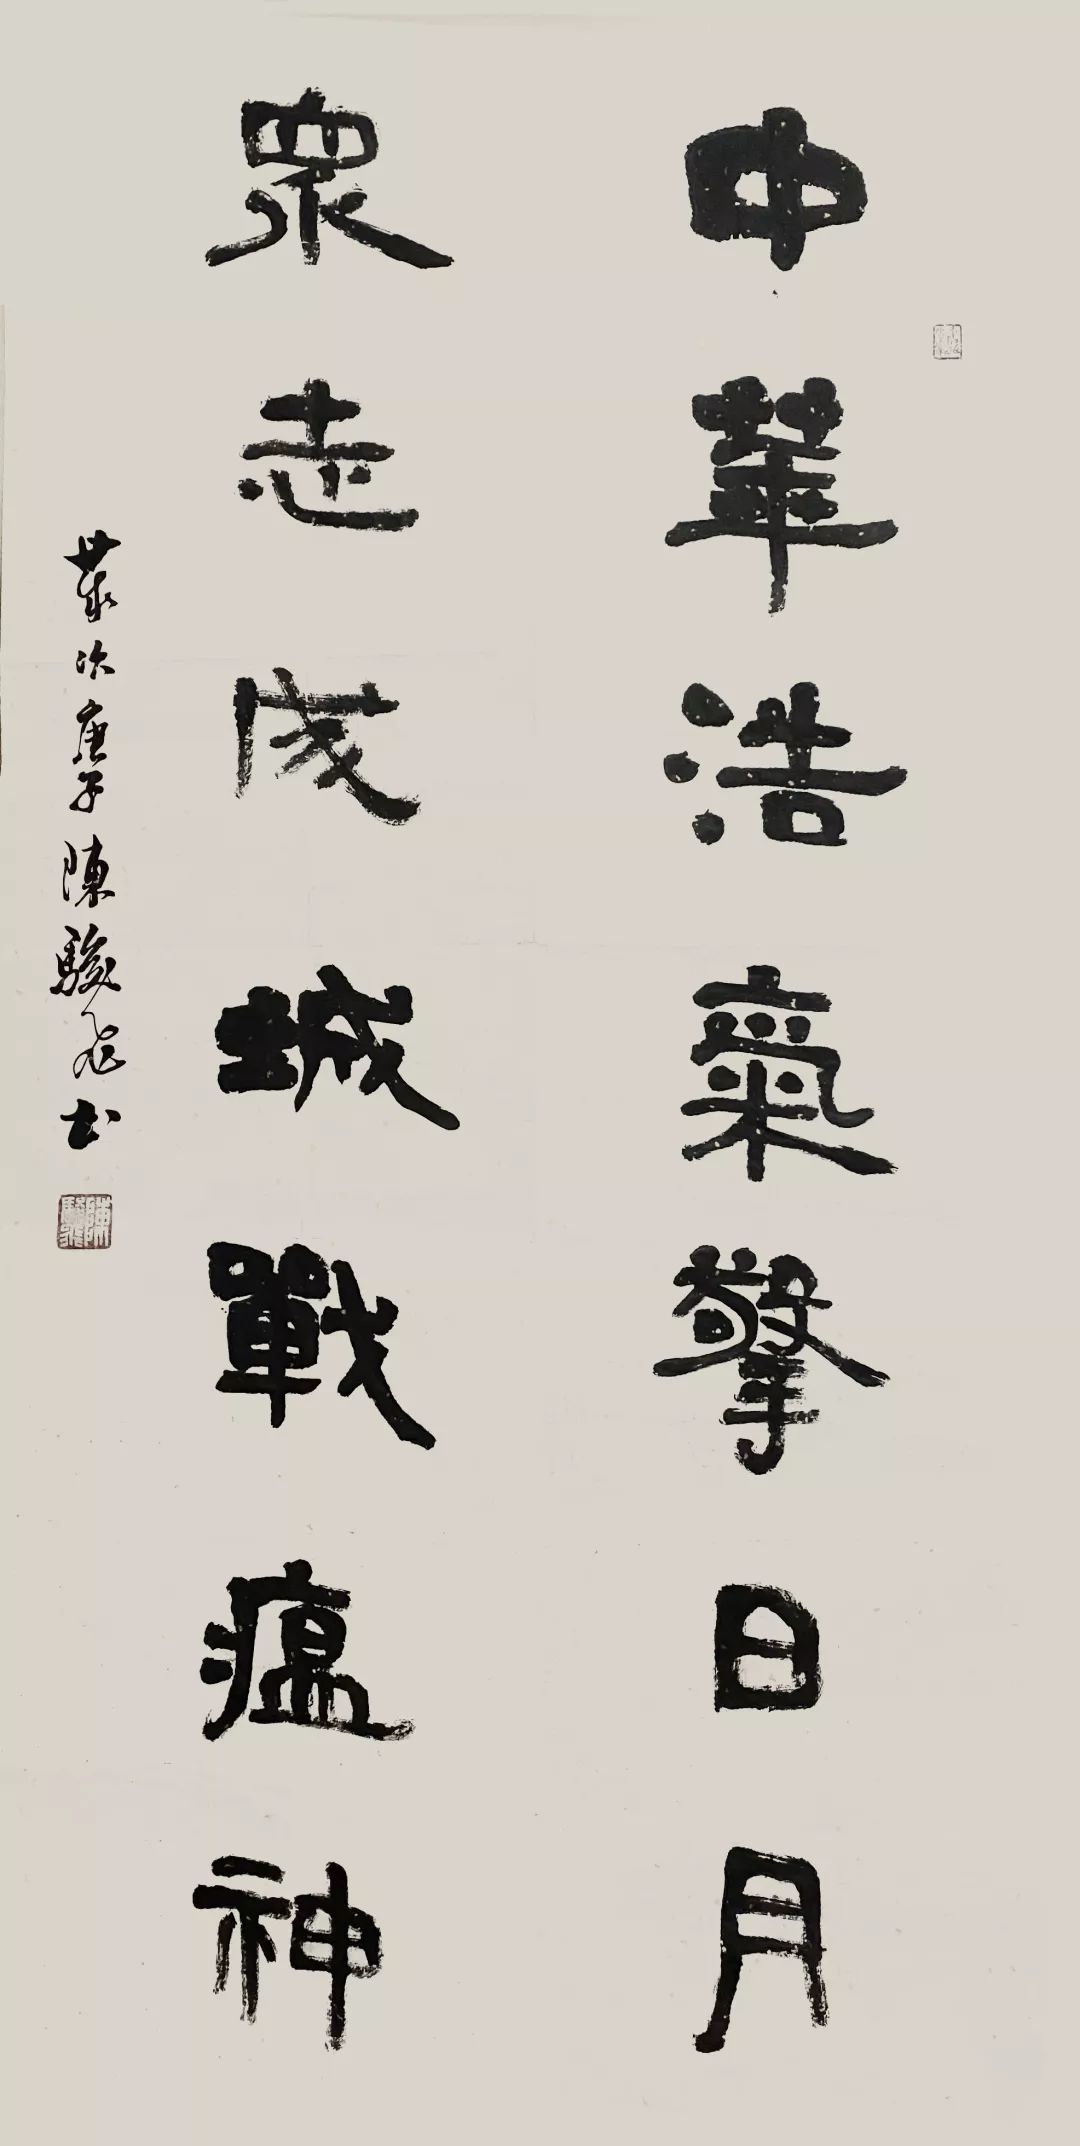 中華浩氣擎日月
眾志成城戰瘟神
歲次庚子陳駿飛书